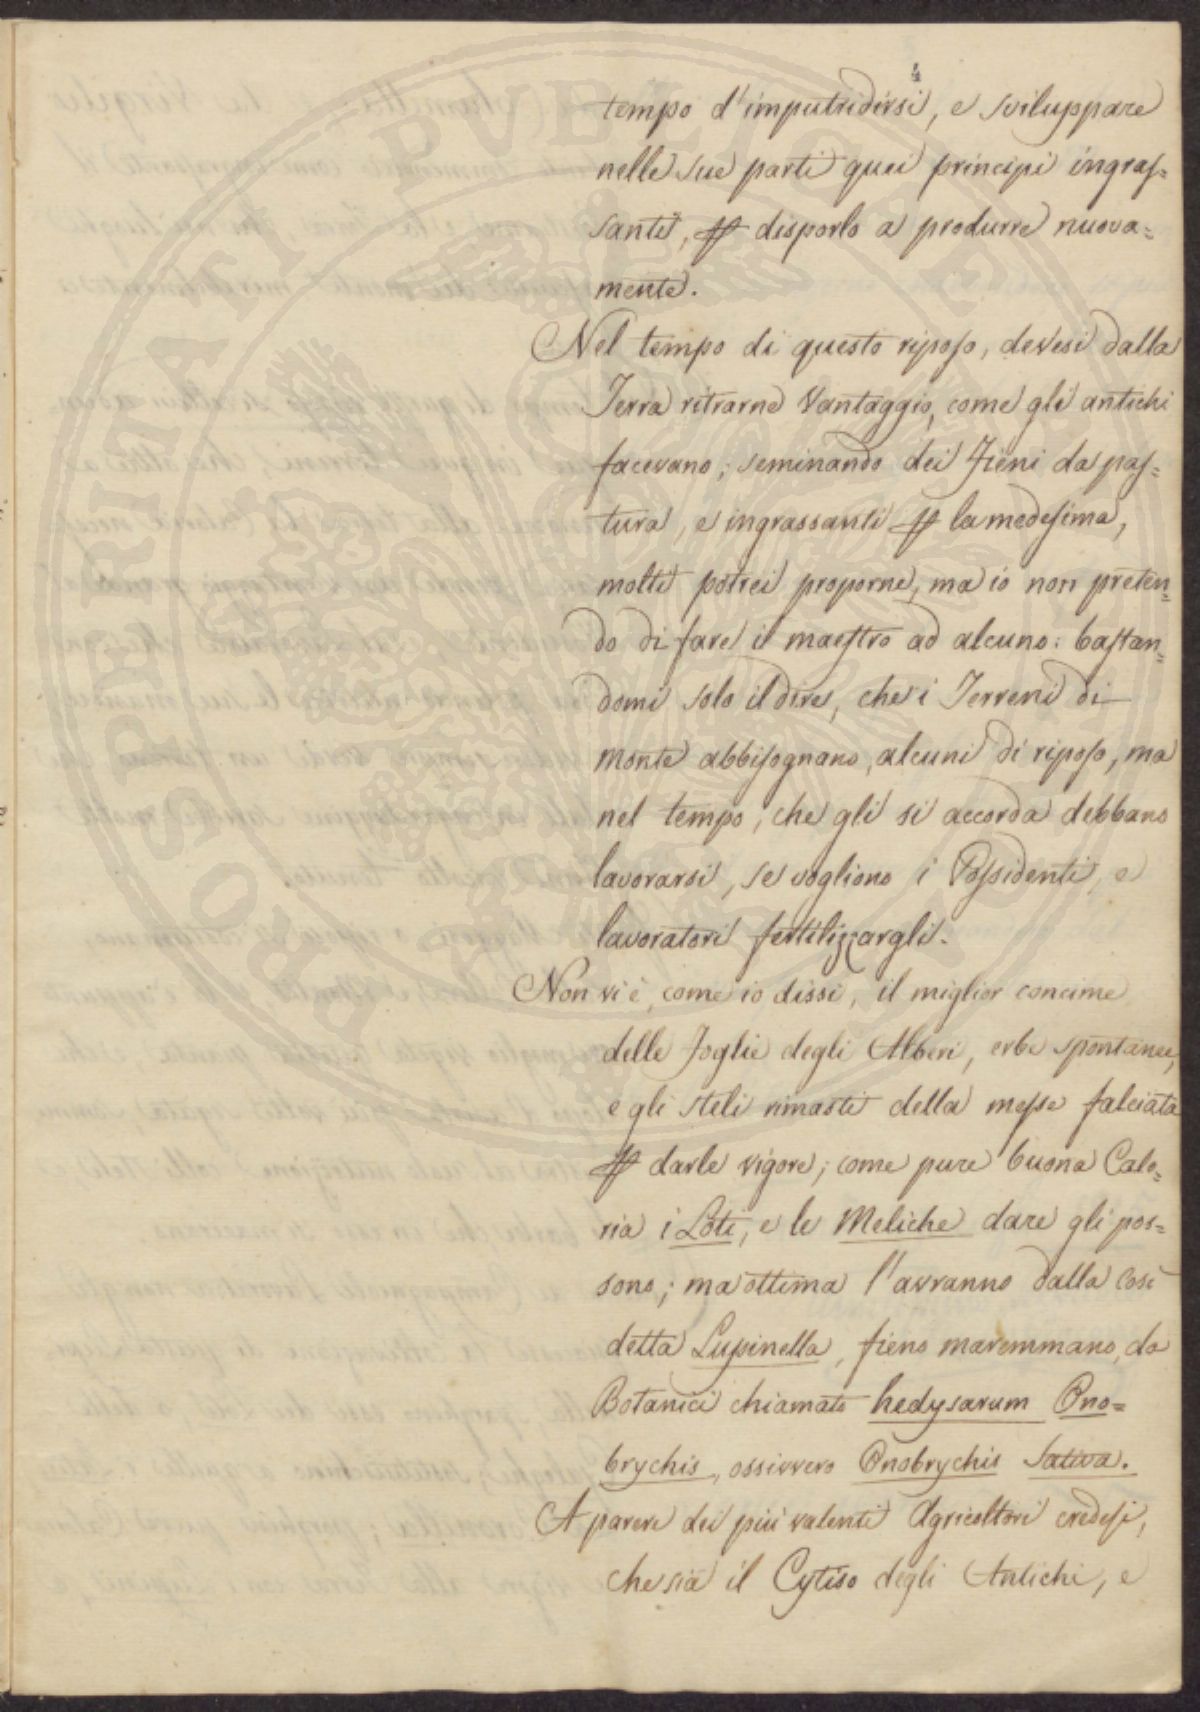 4
tempo d'imputridirsi, e sviluppare
nelle sue parti quei principi ingras=
santi, ꝑ disporlo a produrre nuova=
mente.
Nel tempo di questo riposo, devesi dalla
Terra ritrarne Vantaggio, come gli antichi
facevano; seminando dei Fieni da pas=
tura, e ingrassanti ꝑ la medesima,
molti potrei proporne, ma io non preten=
do di fare il maestro ad alcuno: bastan=
domi solo il dire, che i Terreni di
monte abbisognano, alcuni di riposo, ma
nel tempo, che gli si accorda debbano
lavorarsi, se vogliono i Possidenti, e
lavoratori fertilizzargli.
Non vi è, come io dissi, il miglior concime
delle Foglie degli Alberi, erbe spontanee,
e gli steli rimasti della messe falciata
ꝑ darle vigore; come pure buona Calo=
ria i Loti, e le Meliche dare gli pos=
sono; ma ottima l'avranno dalla così
detta Lupinella, fieno maremmano, da
Botanici chiamato hedysarum Ono=
brychis, ossivvero Onobrychis Sativa.
A parere dei più valenti Agricoltori credesi,
che sia il Cytiso degli Antichi, e
PROSPERITATI PVBLICAE